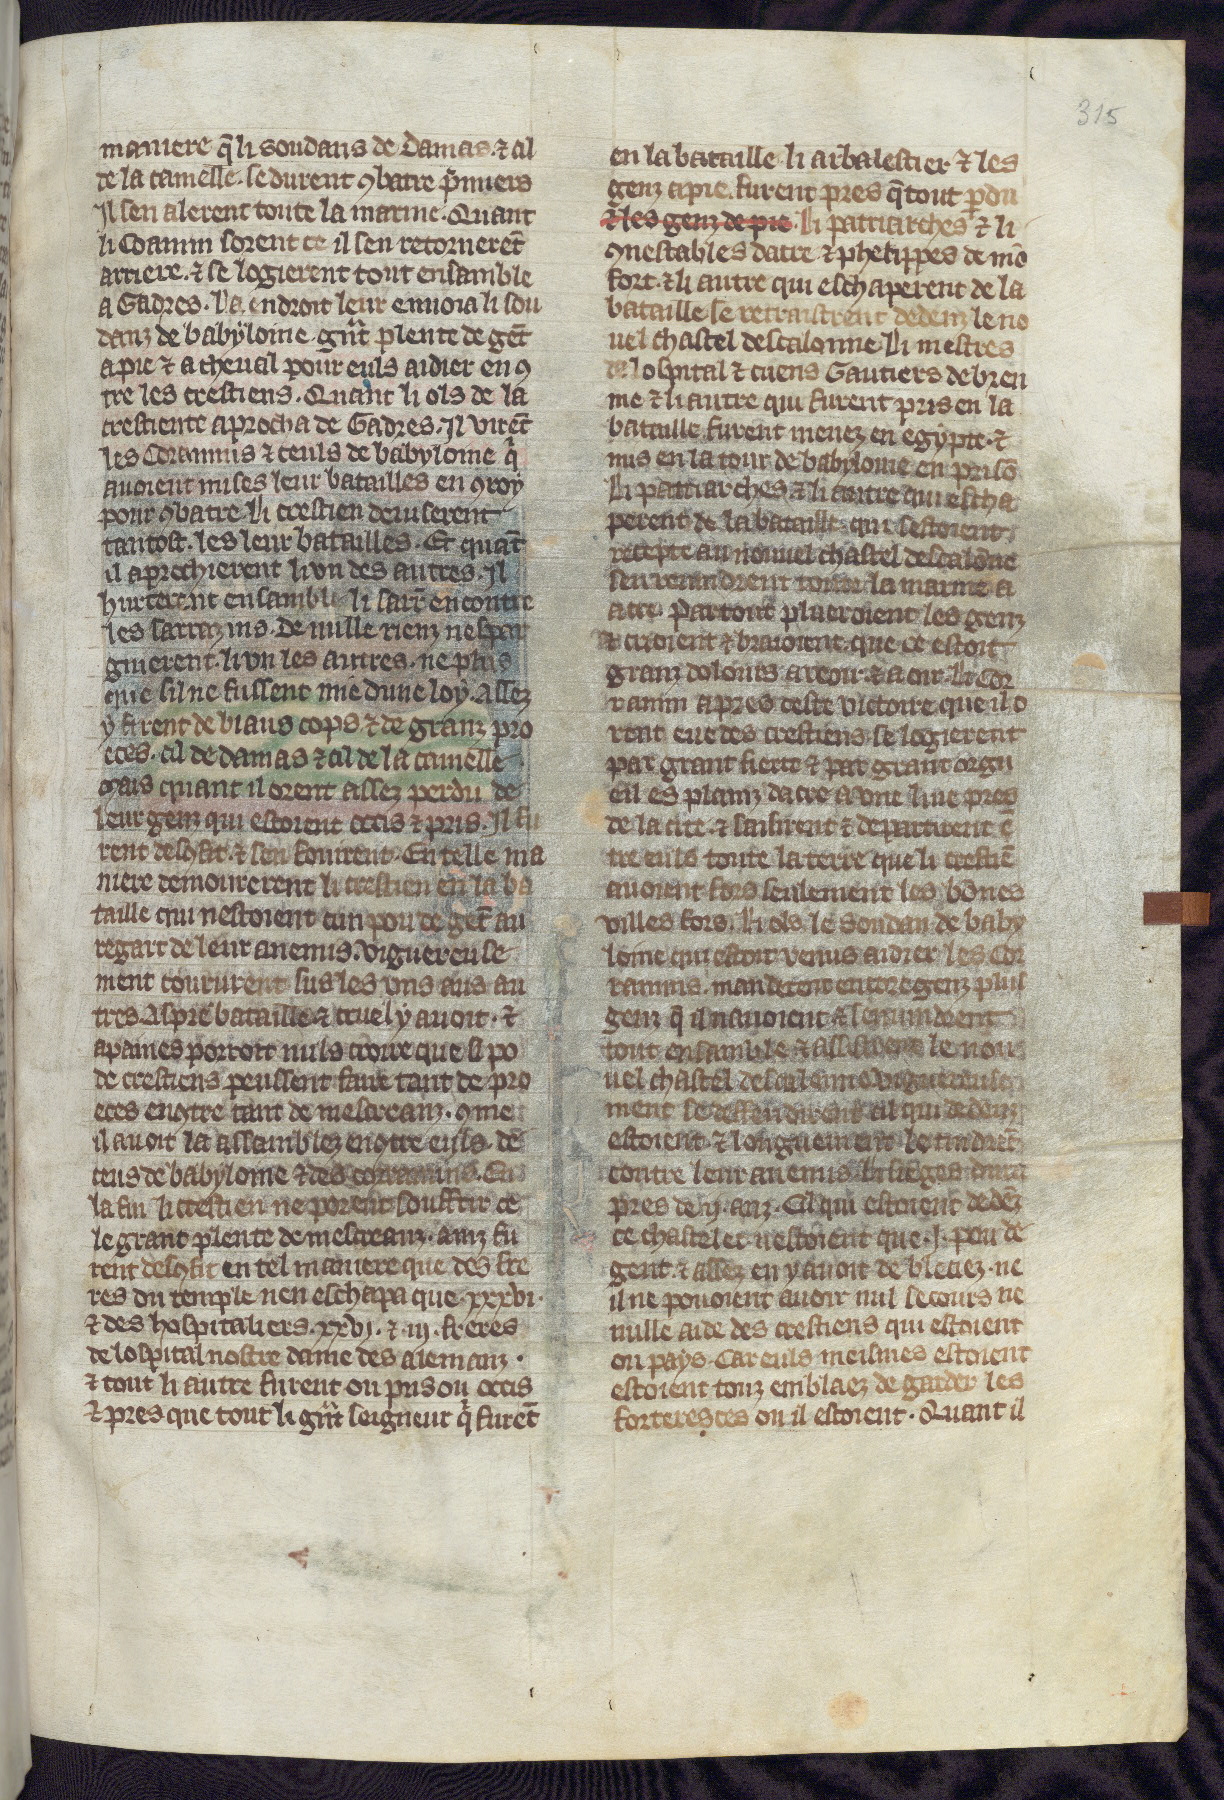 315
maniere q̃ li soudans de damas. ⁊ cil
de la camelle. se durent ꝯbatre p̃miers
Il sen alerent toute la marine. Quant
li Coramin sorent ce il sen retornerẽt
arriere. ⁊ se logierent tout ensamble
a Gadres. La endroit leur enuoia li sou
danz de babyloine. gñt plente de gẽt
a pie ⁊ a cheual pour euls aidier en ꝯ
tre les crestiens. Quant li ols de la
crestiente aprocha de Gadres. Il virẽt
les Coramins ⁊ ceuls de babyloine q̃
auoient mises leur batailles en ꝯroy
pour ꝯbatre. Li crestien deuiserent
tantost. les leur batailles. Et quãt
il aprochierent li vn des autres. Il
hurterent ensamble li sarr̃ encontre
les sarrazins. De nulle rienz nespar
gnierent. li vn les autres. ne plus
que sil ne fussent mie dune loy. Assez
y firent de biaus cops. ⁊ de granz pro
eces. cil de damas ⁊ cil de la camelle
Mais quant il orent assez perdu de
leur genz qui estoient occis ⁊ pris. Il fu
rent descꝯfit. ⁊ sen fouirent. En telle ma
niere demourerent li crestien en la ba
taille qui nestoient cun pou de gẽt au
regart de leur anemis. viguereuse
ment coururent sus les vns aus au
tres. Aspre bataille ⁊ cruel y auoit. ⁊
apaines porroit nuls croire que si po
de crestiens peussent faire tant de pro
eces enꝯtre tant de mescreanz. ꝯme
il auoit la assamblez enꝯtre euls. de
ceus de babyloine ⁊ des coramins. En
la fin li crestien ne porent souffrir ce
le grant plente de mescreanz. ainz fu
rent descꝯfit en tel maniere que des fre
res du temple nen eschapa que. xxxvi.
⁊ des hospitaliers. xxvj. ⁊ .iij. freres
de lospital nostre dame des alemanz.
⁊ tout li autre furent ou pris ou occis
⁊ pres que tout li gñt seigneur q̃ furẽt
en la bataille. li arbalestier ⁊ les
genz a pie. furent pres q̃ tout ꝑdu
⁊ les genz de pie. Li patriarches ⁊ li
ꝯnestables dacre. ⁊ phelippes de mõ
fort. ⁊ li autre qui eschaperent de la
bataille. se retraistrent dedenz le no
uel chastel descalonne. Li mestres
de lospital ⁊ cuens Gautiers de bren
ne ⁊ li autre qui furent pris en la
bataille. furent menez en egypte. ⁊
mis en la tour de babyloine en prisõ
Li patriarches ⁊ li autre qui escha
perent de la bataille. qui sestoient
recepte au nouuel chastel descalõne
sen reuindrent toute la marine a
acre. Par tout plueroient les genz
⁊ crioient ⁊ braioient. que ce estoit
granz dolours a veoir. ⁊ a oir. Li Cor
ramin apres ceste victoire que il o
rent eue des crestiens. se logierent
par grant fierte ⁊ par grant orgu
eil es plainz dacre a vne liue pres
de la cite. ⁊ saisirent ⁊ departirent ẽ
tre euls toute la terre que li crestiẽ
auoient fors seulement les bõnes
villes fors. Li ols le Soudan de baby
loine qui estoit venus aidier les Cor
ramins. manderent encore genz plus
genz q̃ il nauoient ⁊ sen vindrent
tout ensamble ⁊ assistrent le nou
uel chastel descalonne viguereuse
ment se deffendirent cil qui dedenz
estoient. ⁊ longuement le tindrẽt
contre leur anemis. Li sieges dura
pres de .ij. anz. Cil qui estoient dedẽz
ce chastelet nestoient que .j. pou de
gent. ⁊ assez en y auoit de bleciez. ne
il ne pouoient auoir nul secours ne
nulle aide des crestiens qui estoient
ou pays. Car euls meismes estoient
estoient touz enblaez de garder les
forteresces ou il estoient. Quant il